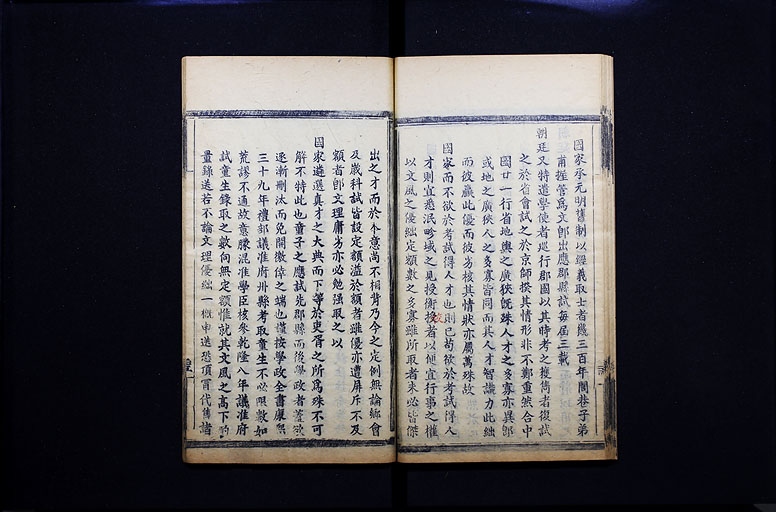 國家承元明舊制以經義取士者幾三百年閭巷子弟
甫握管爲文卽出應郡縣試每屆三載
朝廷又特遣學使者巡行郡國以其時考之獲雋者復試
之於省會試之於京師揆其情形非不鄭重然合中
國廿一行省地輿之廣狹旣殊人才之多寡亦異卽
或地之廣狹人之多寡皆同而其人才智識力此絀
而彼贏此優而彼劣核其情狀亦屬萬殊故
國家而不欲於考試得人才也則已苟欲於考試得人
才則宜悉泯畛域之見授衡校者以便宜行事之權
以文風之優絀定額數之多寡雖所取者未必皆傑
出之才而於本意尚不相背乃今之定例無論鄉會
及歲科試皆設定額溢於額者雖優亦遭屏斥不及
額者卽文理庸劣亦必勉强取之以
國家遴選真才之大典而下等於吏胥之所爲殊不可
解不特此也童子之應試先郡縣而後學政者蓋欲
逐漸刪汰而免開徼倖之端也謹按學政全書康熙
三十九年禮部議准府州縣考取童生不必限數如
荒謬不通故意朦混准學臣核參乾隆八年議准府
試童生錄取之數向無定額惟就其文風之高下酌
量錄送若不論文理優絀一概申送恐頂冒代倩諸